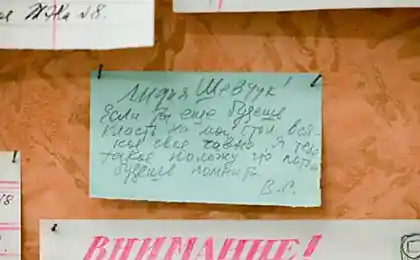 Ж/На 18.
Лидия Шевчук!
Если ты еще будешь
класть на мой стол вся-
кое свое гавно, я тебе
такое положу чо потом
будешь помнить
В.С.
18
ВНИМАНИЕ!